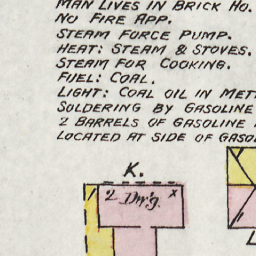 MAN LIVES IN BRICK HO.
NO FIRE APP.
STEAM FORCE PUMP.
HEAT: STEAM & STOVES.
STEAM FOR COOKING.
FUEL: COAL.
LIGHT: COAL OIL IN MET
SOLDERING BY GASOLINE
2 BARRELS OF GASOLINE
LOCATED AT SIDE OF GASO
K.
2 Dw'g. x
L